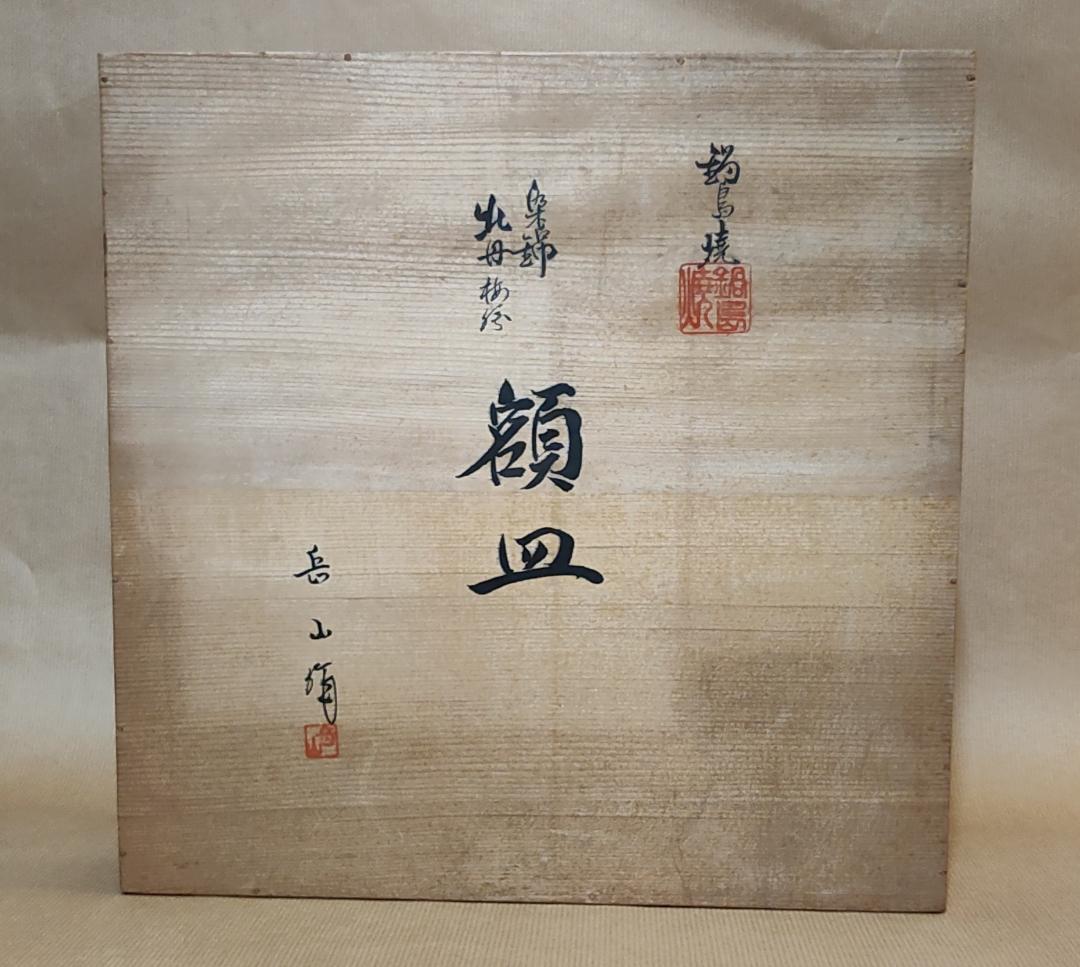 鍋島焼
鍋島焼
染錦
牡丹梅絵
額皿
岳山